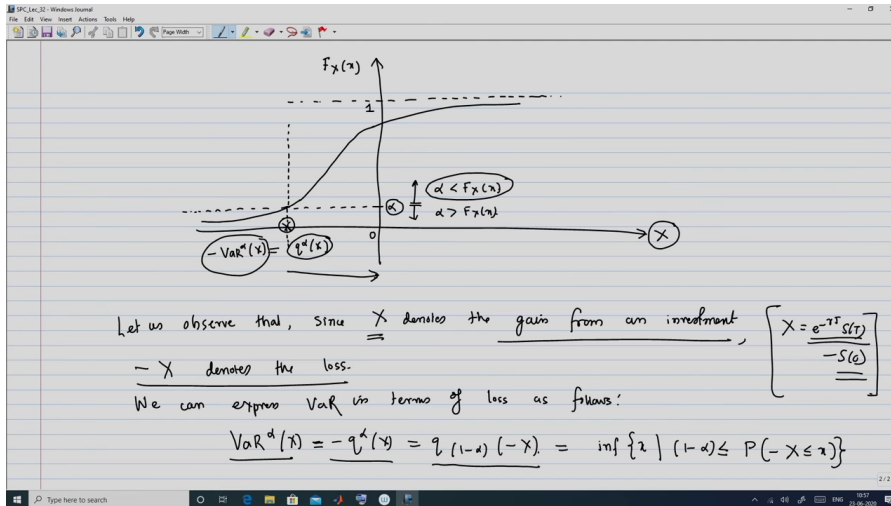 SPC_Lec_32 - Windows Journal
File Edit View Insert Actions Tools Help
Page Width
F_X(x)
1
α < F_X(x)
α
α > F_X(x)
0
X
-VaR^α(X) = q^α(X)
Let us observe that, since X denotes the gain from an investment,
X = e^{-rT} S(T)
- S(0)
- X denotes the loss.
We can express VaR in terms of loss as follows:
VaR^α(X) = -q^α(X) = q_(1-α)(-X). = inf{x | (1-α) ≤ P(-X ≤ x)}
2/2
Type here to search
ENG
10:57
23-06-2020